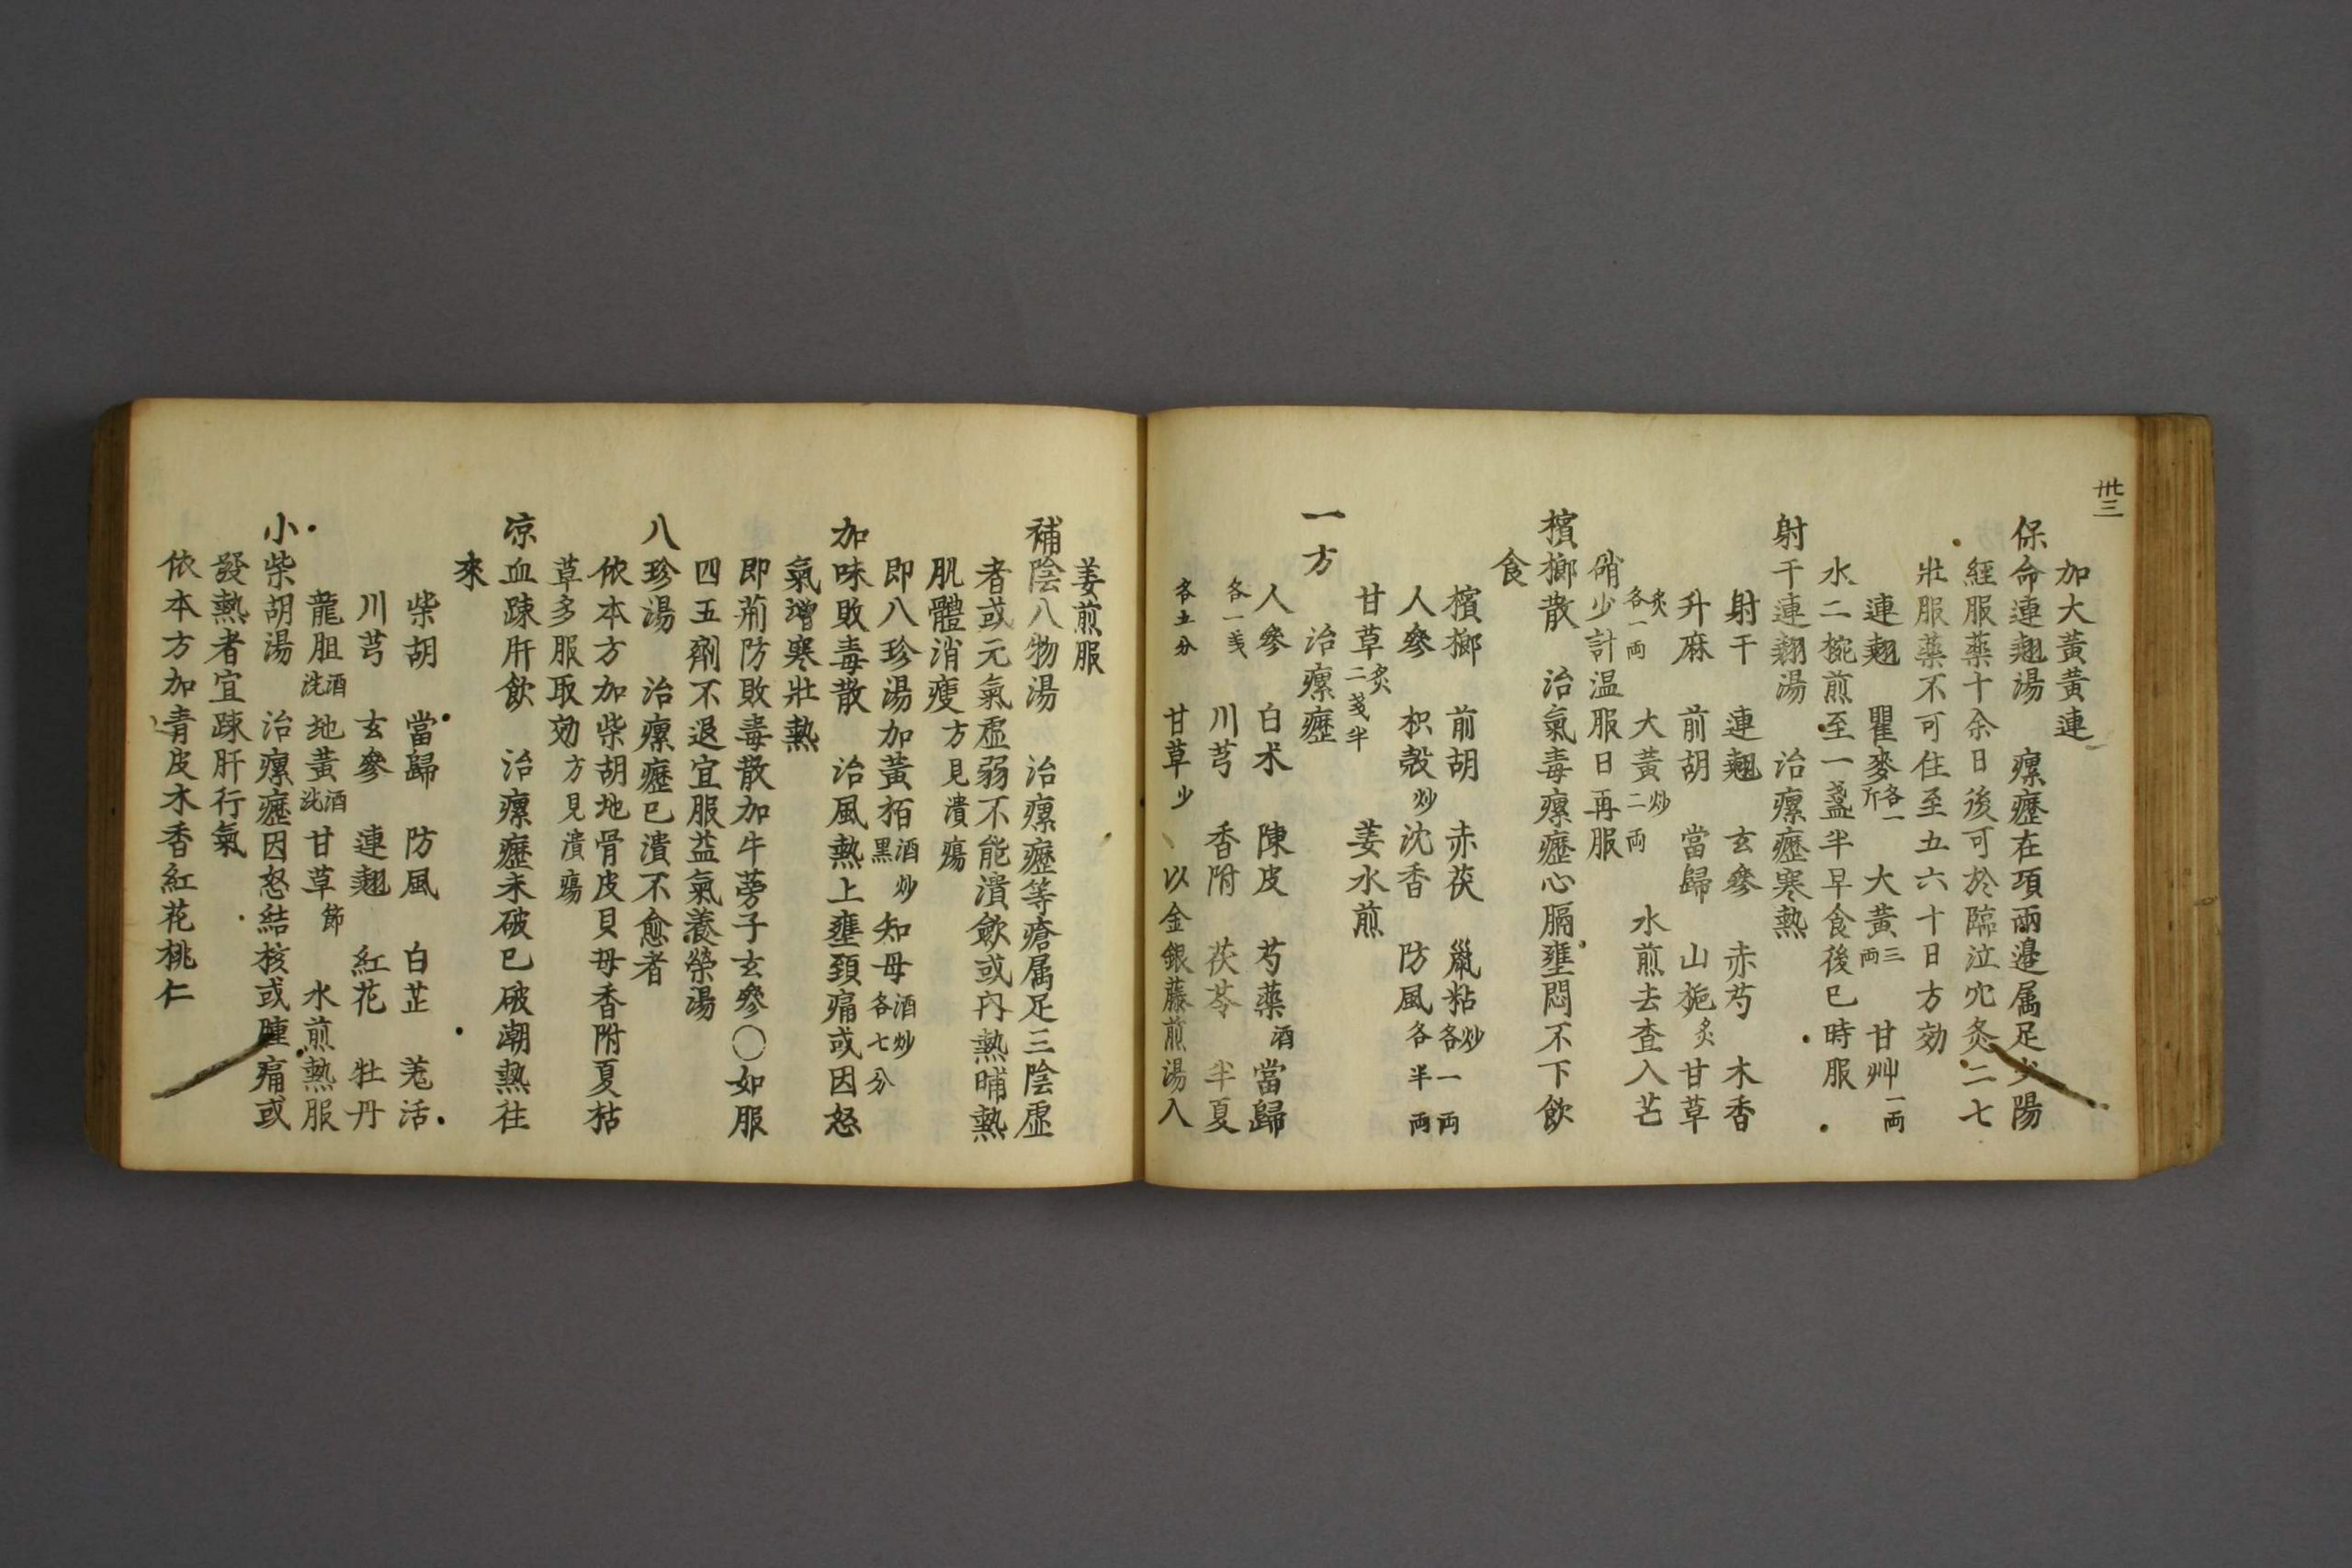 卅三
加大黃黃連
保命連翹湯　瘰癧在項兩邉属足少陽
經服薬十余日後可於臨泣穴灸二七
壮服薬不可住至五六十日方効
連翹　瞿麥各一斤　大黃三両　甘艸一両
水二椀煎至一盞半早食後巳時服
射干連翹湯　治瘰癧寒熱
射干　連翹　玄參　赤芍　木香
升麻　前胡　當歸　山梔　炙甘草
炙各一両　大黃炒二両　水煎去査入芒
硝少計温服日再服
檳榔散　治氣毒瘰癧心膈壅悶不下飲
食
檳榔　前胡　赤茯　鼠粘炒各一両
人參　枳殻炒　沈香　防風各半両
甘草炙二戔半　姜水煎
一方　治瘰癧
人參　白朮　陳皮　芍薬酒　當歸
各一戔　川芎　香附　茯苓　半夏
各五分　甘草少　以金銀藤煎湯入
姜煎服
補陰八物湯　治瘰癧等瘡属足三陰虚
者或元氣虚弱不能潰歛或内熱晡熱
肌體消瘦方見潰瘍
即八珍湯加黃栢酒炒黒　知母酒炒各七分
加味敗毒散　治風熱上壅頚痛或因怒
氣増寒壮熱
即荊防敗毒散加牛蒡子玄參〇如服
四五劑不退宜服益氣養榮湯
八珍湯　治瘰癧已潰不愈者
依本方加柴胡地骨皮貝母香附夏枯
草多服取効方見潰瘍
凉血踈肝飲　治瘰癧未破已破潮熱往
來
柴胡　當歸　防風　白芷　羌活
川芎　玄參　連翹　紅花　牡丹
龍胆酒洗　地黃酒洗　甘草節　水煎熱服
小柴胡湯　治瘰癧因怒結核或腫痛或
發熱者宜踈肝行氣
依本方加青皮木香紅花桃仁